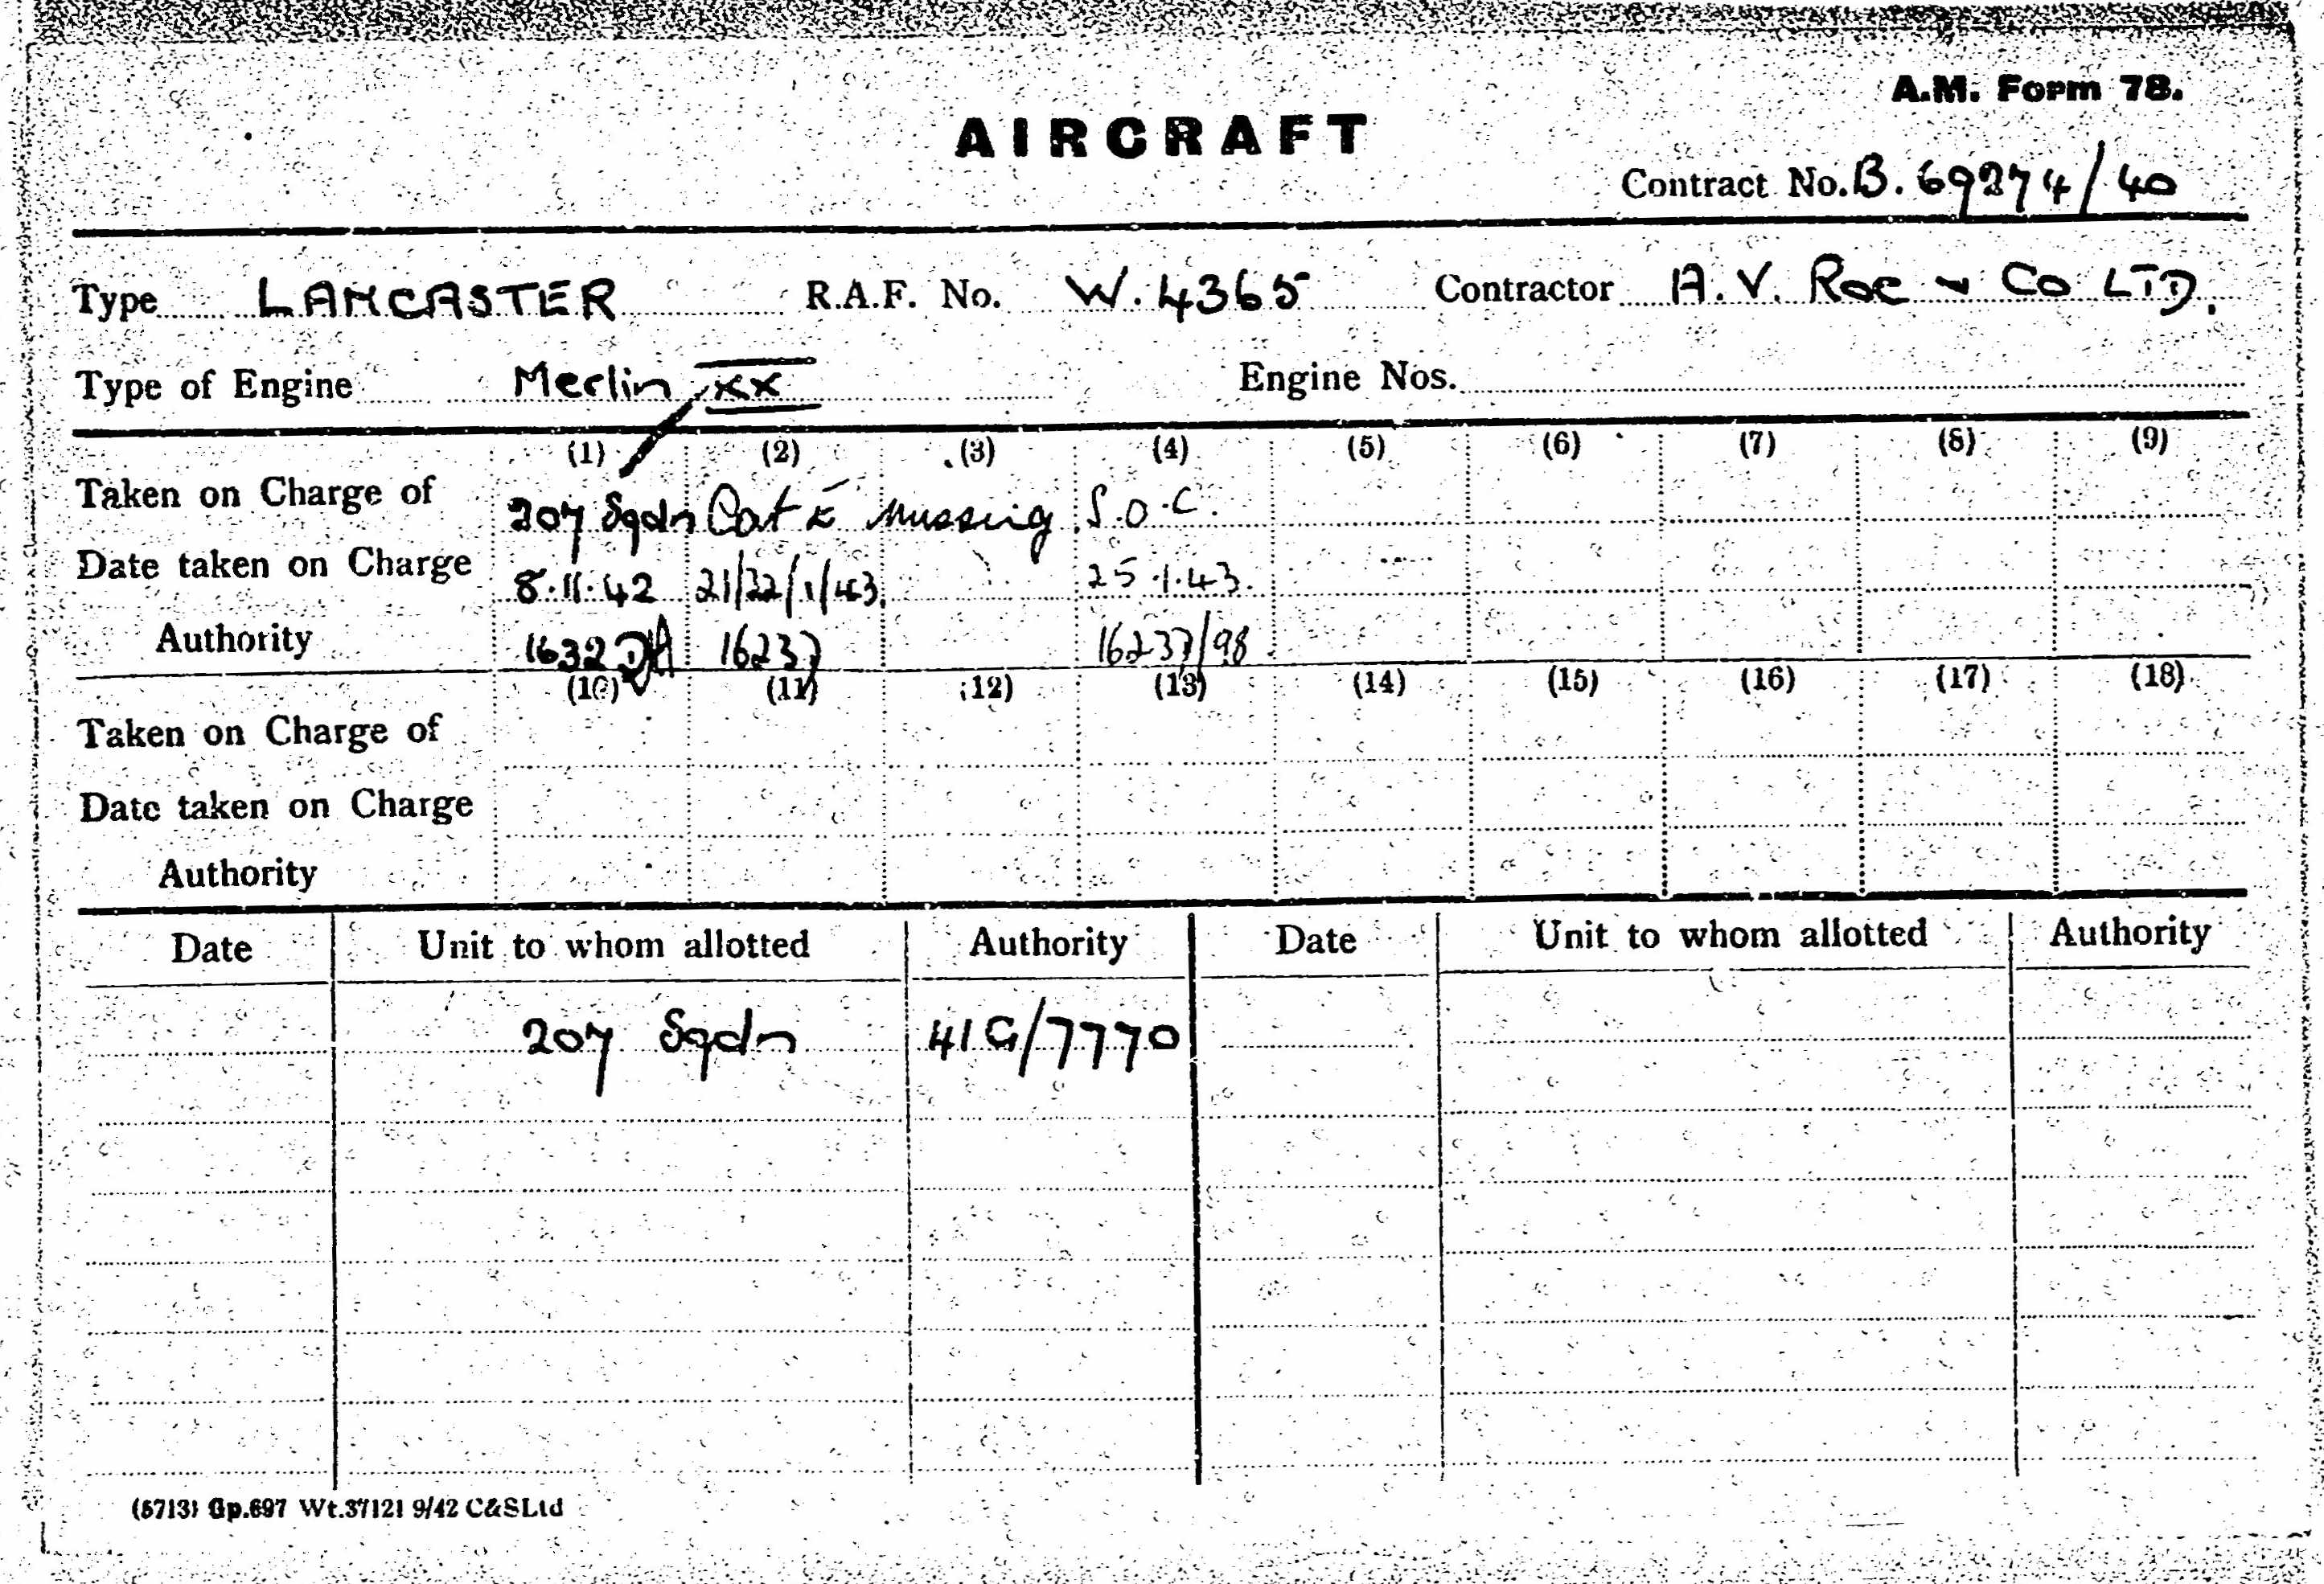 A.M. Form 78.
AIRCRAFT
Contract No. B.69274/40
Type LANCASTER R.A.F. No. W.4365 Contractor A.V. Roe & Co LTD.
Type of Engine Merlin XX Engine Nos.
(1) (2) (3) (4) (5) (6) (7) (8) (9)
Taken on Charge of 207 Sqdn Cat E Missing S.O.C.
Date taken on Charge 8.11.42 21/22/1/43 25.1.43.
Authority 1632 16237 16237/98
(10) (11) (12) (13) (14) (15) (16) (17) (18)
Taken on Charge of
Date taken on Charge
Authority
Date Unit to whom allotted Authority Date Unit to whom allotted Authority
207 Sqdn 41G/7770
(5713) Gp.697 Wt.37121 9/42 C&SLtd